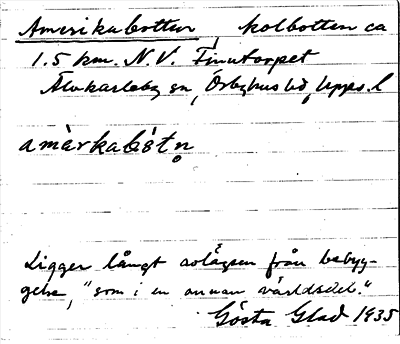 Amerikabotten, kolbotten ca
1.5 km. N.V. Finntorpet
Älvkarleby sn, Örbyhus hd, Upps. l
amàrkabót̀n̥
Ligger långt avlägsen från bebyg-
gelse, "som i en annan världsdel."
Gösta Glad 1935